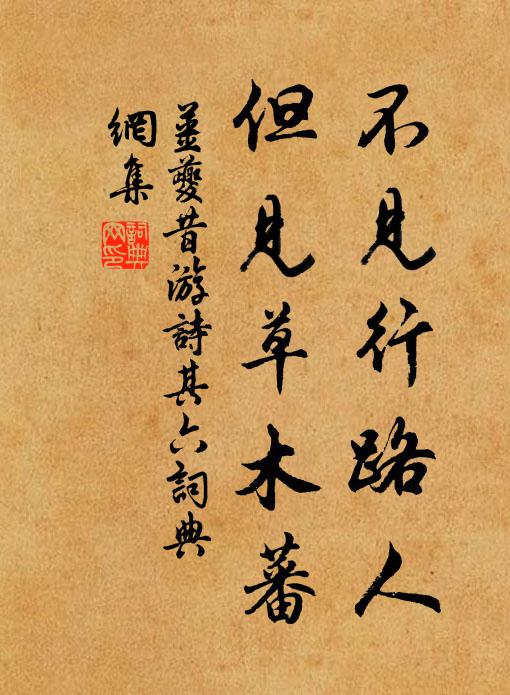 不見行路人
但見草木蕃
薑夔昔游詩其六詞典
網集
詞典網印